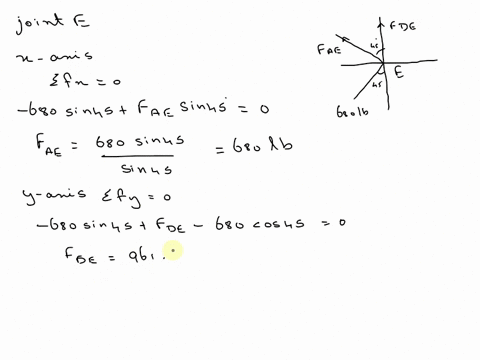 joint E
x-axis
Σfx = 0
-680 sin45 + FAE sin45 = 0
FAE = 680 sin45 / sin45 = 680 lb
y-axis Σfy = 0
-680 sin45 + FDE - 680 cos45 = 0
FDE = 961.
FDE
45
FAE
E
45
680 lb